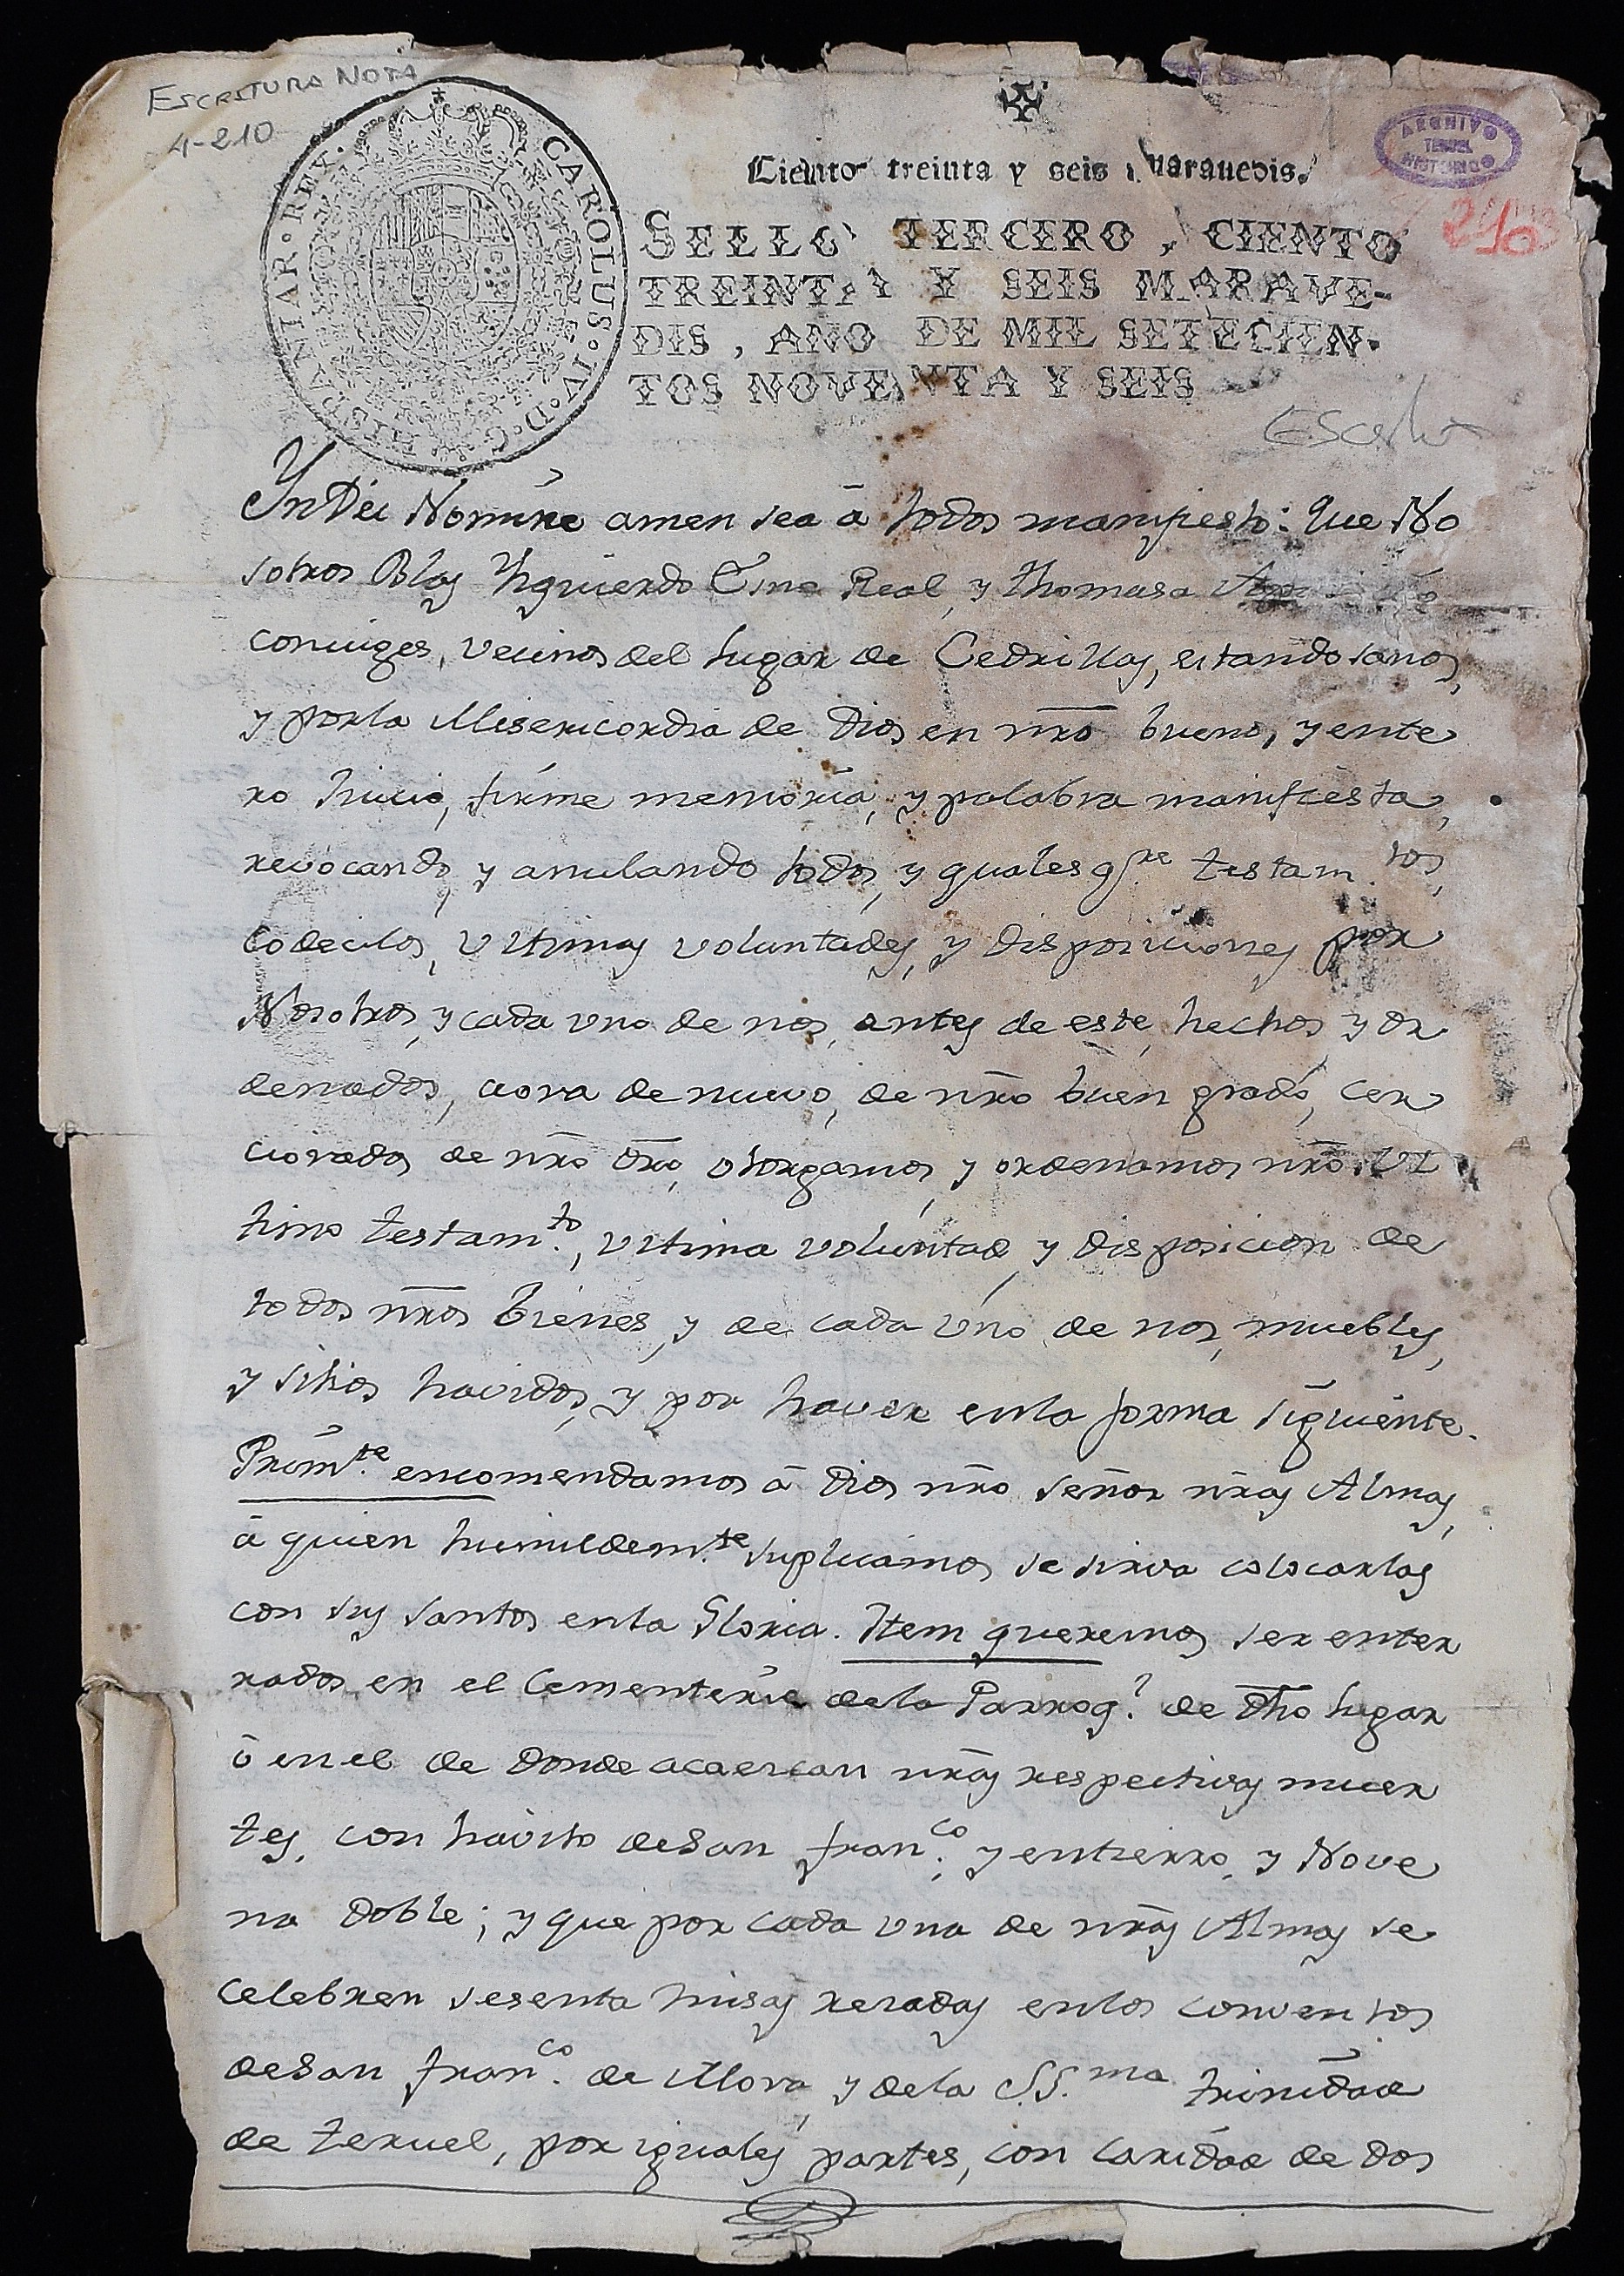 ESCRITURA NOTA
4-210
CAROLUS·IV·D·G·HISPANIAR·REX·
Ciento treinta y seis marauedis.
ARCHIVO
TERUEL
HISTORICO
SELLO TERCERO, CIENTO
TREINTA Y SEIS MARAVE-
DIS, AÑO DE MIL SETECIEN-
TOS NOVENTA Y SEIS
Yn Dei Nomine amen sea â todos manifiesto: Que No
sotros Blas Yzquierdo Esno Real, y Thomasa
coniuges, vecinos del Lugar de Cedrillas, estando sanos,
y por la Misericordia de Dios en nro bueno, y ente
ro Juicio, firme memoria, y palabra manifiesta,
revocando, y anulando todos, y qualesqre testam.tos,
Codecilos, Vltimas voluntades, y disposiciones por
Nosotros, y cada uno de nos, antes de este, hechos y or
denados, aora de nuevo, de nro buen grado, cer
ciorados de nro dro, otorgamos, y ordenamos nro Vl
timo testam.to, vltima voluntad, y disposicion de
todos nros bienes, y de cada vno de nos, muebles,
y sitios havidos, y por haver en la forma siguiente.
Prim.te encomendamos â Dios nro Señor nras Almas,
â quien humildem.te suplicamos se sirva colocarlas
con sus Santos en la Gloria. Item queremos ser enter
rados en el Cementerio de la Parroq.a de dho Lugar
ô en el de donde acaezcan nras respectivas muer
tes, con havito de San Fran.co, y entierro, y Nove
na doble; y que por cada una de nras Almas se
celebren sesenta misas rezadas en los conventos
de San Fran.co de Mora, y de la SS.ma trinidad
de teruel, por iguales partes, con caridad de dos